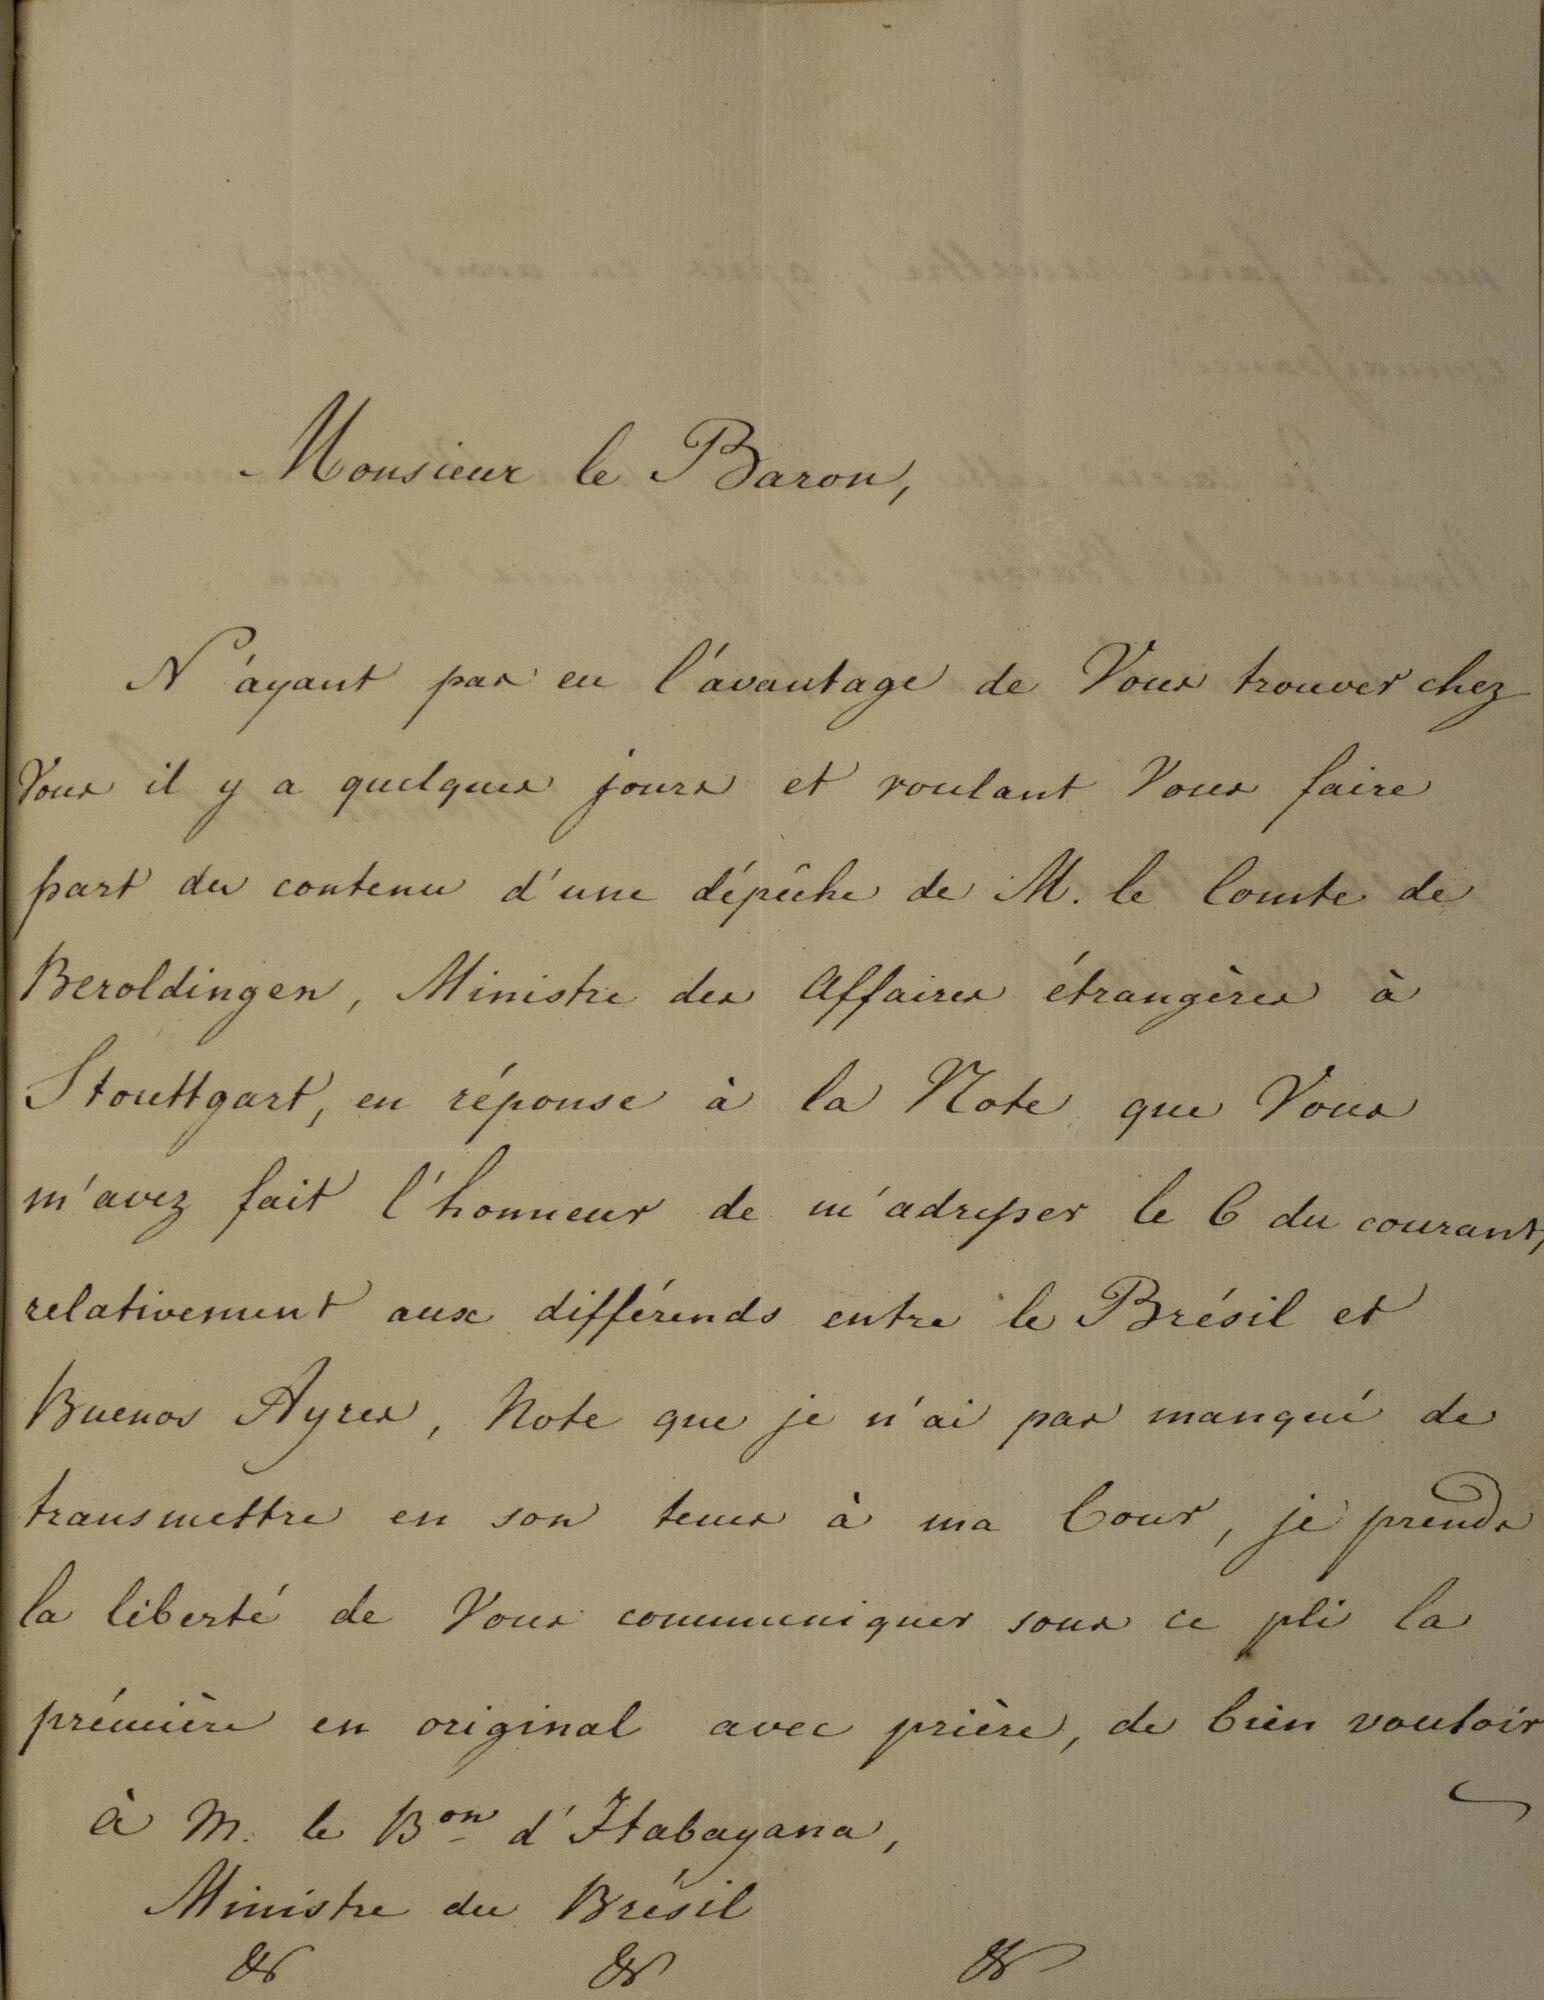 Monsieur le Baron,
N'ayant pas eu l'avantage de Vous trouver chez
Vous il y a quelques jours et voulant Vous faire
part du contenu d'une dépêche de M. le Comte de
Beroldingen, Ministre des Affaires étrangères à
Stouttgart, en réponse à la Note que Vous
m'avez fait l'honneur de m'adresser le 6 du courant,
relativement aux différends entre le Brésil et
Buenos Ayres, Note que je n'ai pas manqué de
transmettre en son tems à ma Cour, je prends
la liberté de Vous communiquer sous ce pli la
prémière en original avec prière, de bien vouloir
à M. le Bon d'Itabayana,
Ministre du Brésil
& & &